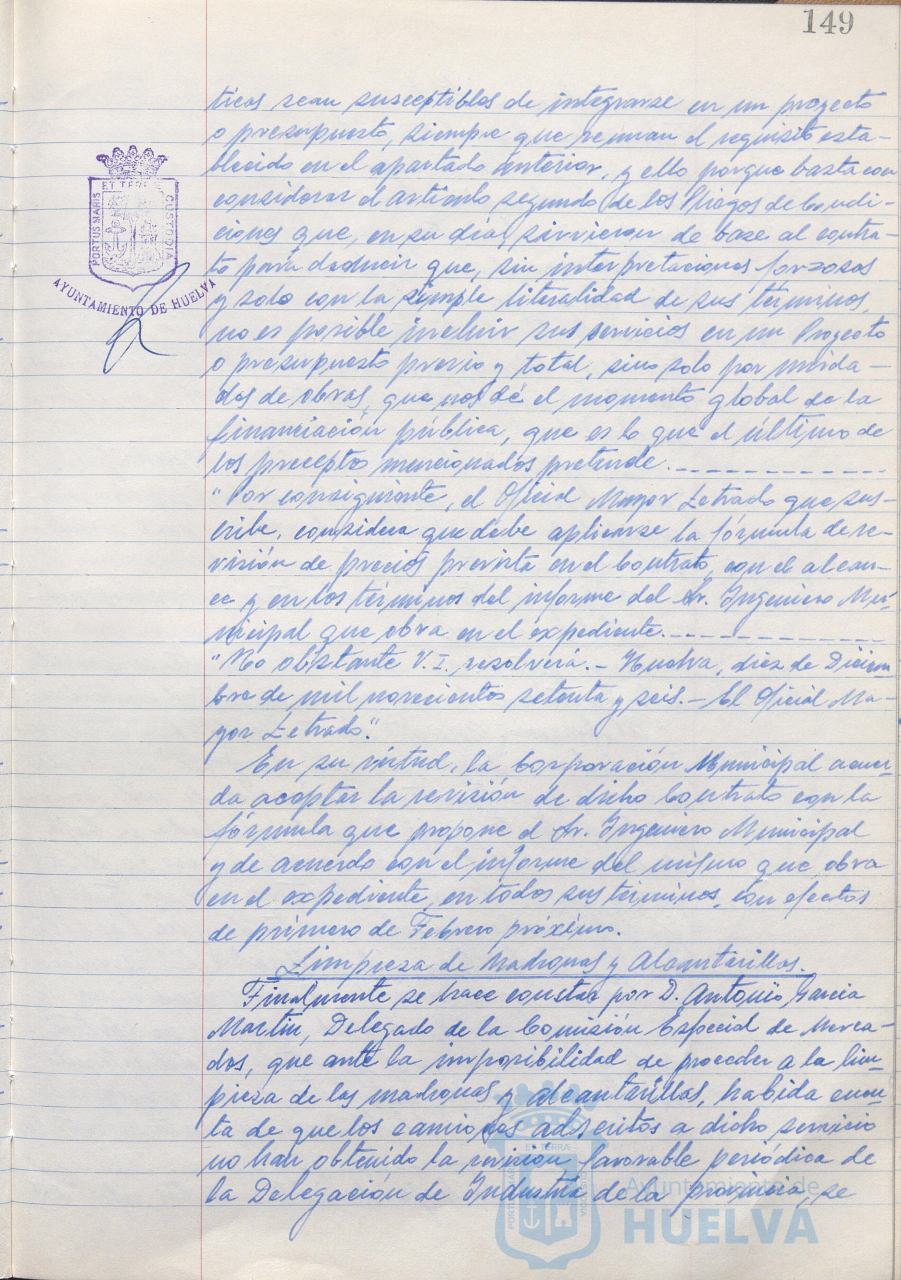 149
ticas sean susceptibles de integrarse en un proyecto
o presupuesto, siempre que reunan el requisito esta-
blecido en el apartado anterior, y ello porque basta con
considerar el artículo segundo de los Pliegos de Condi-
ciones que, en su día, sirvieron de base al contra-
to para deducir que, sin interpretaciones forzosas
y solo con la simple literalidad de sus terminos,
no es posible incluir sus servicios en un Proyecto
o presupuesto previo y total, sino solo por unida-
des de obras, que nos dé el momento global de la
financiación pública, que es lo que el último de
los preceptos mencionados pretende.
"Por consiguiente, el Oficial Mayor Letrado que sus-
cribe, considera que debe aplicarse la fórmula de re-
visión de precios prevista en el Contrato, con el alcan-
ce y en los términos del informe del Sr. Ingeniero Mu-
nicipal que obra en el expediente.
"No obstante V.I. resolverá.- Huelva, diez de Diciem-
bre de mil novecientos setenta y seis.- El Oficial Ma-
yor Letrado."
En su virtud, la Corporación Municipal acuer-
da aceptar la revisión de dicho Contrato con la
fórmula que propone el Sr. Ingeniero Municipal
y de acuerdo con el informe del mismo que obra
en el expediente, en todos sus términos, con efectos
de primero de Febrero próximo.
Limpieza de Madronas y Alcantarillas.
Finalmente se hace constar por D. Antonio García
Martín, Delegado de la Comisión Especial de Merca-
dos, que ante la imposibilidad de proceder a la lim-
pieza de las madronas y alcantarillas, habida cuen-
ta de que los camiones adscritos a dicho servicio
no han obtenido la revisión favorable periódica de
la Delegación de Industria de la provincia, se
PORTUS MARIS
ET TERRÆ
CUSTODIA
AYUNTAMIENTO DE HUELVA
Ayuntamiento de
HUELVA